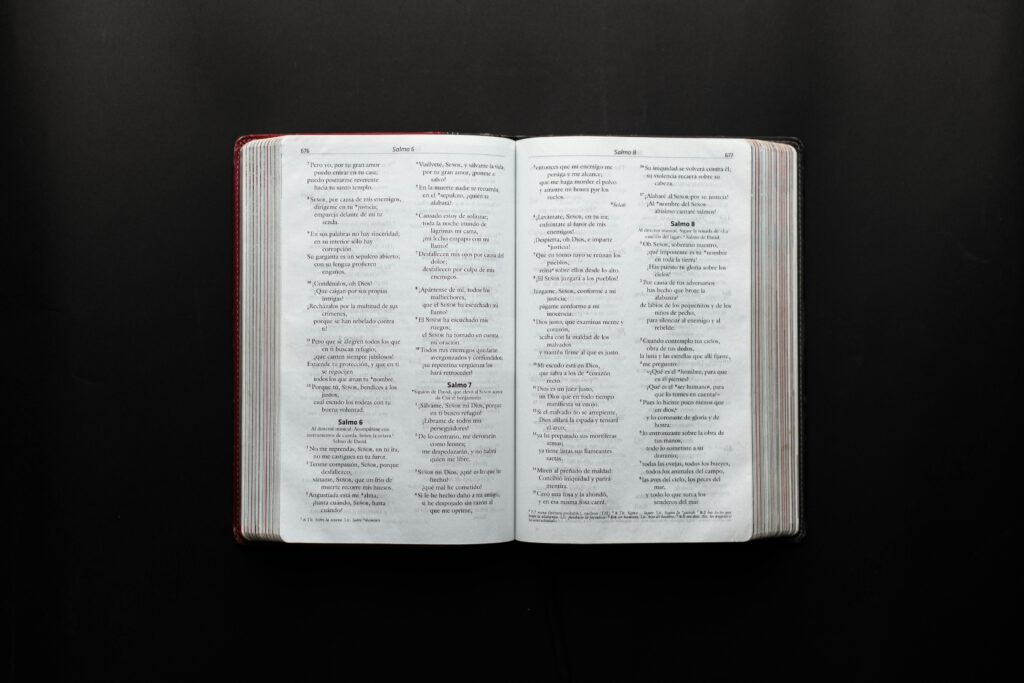 676
Salmo 6
⁷ Pero yo, por tu gran amor
puedo entrar en tu casa;
puedo postrarme reverente
hacia tu santo templo.
⁸ Señor, por causa de mis enemigos,
dirígeme en tu *justicia;
empareja delante de mí tu
senda.
⁹ En sus palabras no hay sinceridad;
en su interior sólo hay
corrupción.
Su garganta es un sepulcro abierto;
con su lengua profieren
engaños.
¹⁰ ¡Condénalos, oh Dios!
¡Que caigan por sus propias
intrigas!
¡Recházalos por la multitud de sus
crímenes,
porque se han rebelado contra
ti!
¹¹ Pero que se alegren todos los que
en ti buscan refugio;
¡que canten siempre jubilosos!
Extiende tu protección, y que en ti
se regocijen
todos los que aman tu *nombre.
¹² Porque tú, Señor, bendices a los
justos;
cual escudo los rodeas con tu
buena voluntad.
Salmo 6
Al director musical. Acompáñese con
instrumentos de cuerda. Sobre la octava.
Salmo de David.
¹ No me reprendas, Señor, en tu ira;
no me castigues en tu furor.
² Tenme compasión, Señor, porque
desfallezco;
sáname, Señor, que un frío de
muerte recorre mis huesos.
³ Angustiada está mi *alma;
¿hasta cuándo, Señor, hasta
cuándo?
⁴ Vuélvete, Señor, y sálvame la vida;
por tu gran amor, ¡ponme a
salvo!
⁵ En la muerte nadie te recuerda;
en el *sepulcro, ¿quién te
alabará?
⁶ Cansado estoy de sollozar;
toda la noche inundo de
lágrimas mi cama,
¡mi lecho empapo con mi
llanto!
⁷ Desfallecen mis ojos por causa del
dolor;
desfallecen por culpa de mis
enemigos.
⁸ ¡Apártense de mí, todos los
malhechores,
que el Señor ha escuchado mi
llanto!
⁹ El Señor ha escuchado mis
ruegos;
el Señor ha tomado en cuenta
mi oración.
¹⁰ Todos mis enemigos quedarán
avergonzados y confundidos;
¡su repentina vergüenza los
hará retroceder!
Salmo 7
*Sigaión de David, que elevó al Señor acerca
de Cus el benjaminita.
¹ ¡Sálvame, Señor mi Dios, porque
en ti busco refugio!
¡Líbrame de todos mis
perseguidores!
² De lo contrario, me devorarán
como leones;
me despedazarán, y no habrá
quien me libre.
³ Señor mi Dios, ¿qué es lo que he
hecho?
¿qué mal he cometido?
⁴ Si le he hecho daño a mi amigo,
si he despojado sin razón al
que me oprime,
Salmo 8
677
⁵ entonces que mi enemigo me
persiga y me alcance;
que me haga morder el polvo
y arrastre mi honra por los
suelos.
*Selah
⁶ ¡Levántate, Señor, en tu ira;
enfréntate al furor de mis
enemigos!
¡Despierta, oh Dios, e imparte
*justicia!
⁷ Que en torno tuyo se reúnan los
pueblos;
reina sobre ellos desde lo alto.
⁸ ¡El Señor juzgará a los pueblos!
Júzgame, Señor, conforme a mi
justicia;
págame conforme a mi
inocencia.
⁹ Dios justo, que examinas mente y
corazón,
acaba con la maldad de los
malvados
y mantén firme al que es justo.
¹⁰ Mi escudo está en Dios,
que salva a los de *corazón
recto.
¹¹ Dios es un juez justo,
un Dios que en todo tiempo
manifiesta su enojo.
¹² Si el malvado no se arrepiente,
Dios afilará la espada y tensará
el arco;
¹³ ya ha preparado sus mortíferas
armas;
ya tiene listas sus llameantes
saetas.
¹⁴ Miren al preñado de maldad:
Concibió iniquidad y parirá
mentira.
¹⁵ Cavó una fosa y la ahondó,
y en esa misma fosa caerá.
¹⁶ Su iniquidad se volverá contra él;
su violencia recaerá sobre su
cabeza.
¹⁷ ¡Alabaré al Señor por su justicia!
¡Al *nombre del Señor
altísimo cantaré salmos!
Salmo 8
Al director musical. Sígase la tonada de «La
canción del lagar». Salmo de David.
¹ Oh Señor, soberano nuestro,
¡qué imponente es tu *nombre
en toda la tierra!
¡Has puesto tu gloria sobre los
cielos!
² Por causa de tus adversarios
has hecho que brote la
alabanza
de labios de los pequeñitos y de los
niños de pecho,
para silenciar al enemigo y al
rebelde.
³ Cuando contemplo tus cielos,
obra de tus dedos,
la luna y las estrellas que allí fijaste,
me pregunto:
⁴ «¿Qué es el *hombre, para que
en él pienses?
¿Qué es el *ser humano, para
que lo tomes en cuenta?»
⁵ Pues lo hiciste poco menos que
un dios,
y lo coronaste de gloria y de
honra:
⁶ lo entronizaste sobre la obra de
tus manos,
todo lo sometiste a su
dominio;
⁷ todas las ovejas, todos los bueyes,
todos los animales del campo,
⁸ las aves del cielo, los peces del
mar,
y todo lo que surca los
senderos del mar.